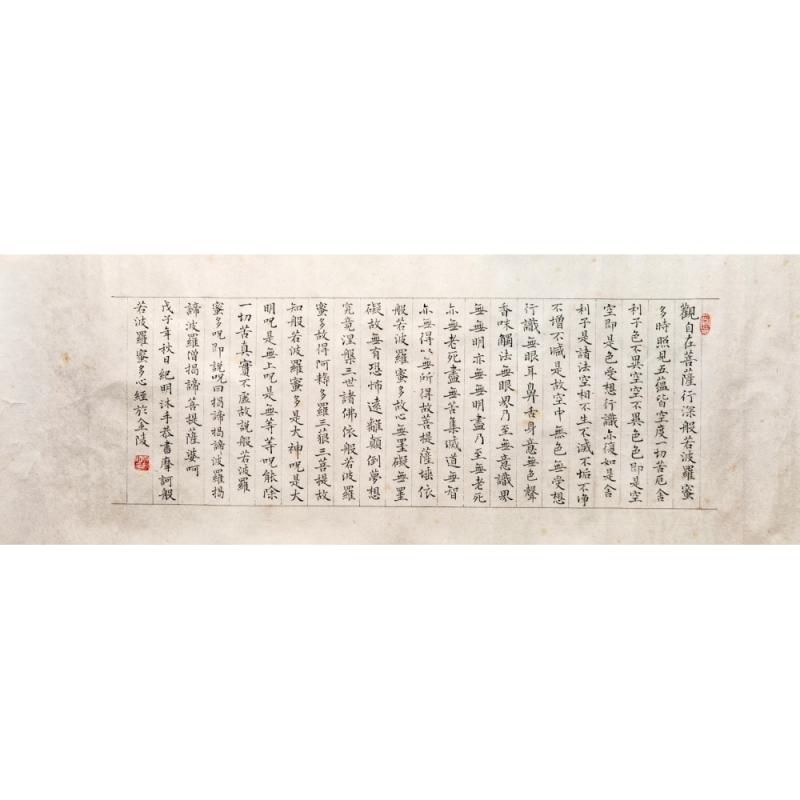 觀自在菩薩行深般若波羅蜜
多時照見五蘊皆空度一切苦厄舍
利子色不異空空不異色色即是空
空即是色受想行識亦復如是舍
利子是諸法空相不生不滅不垢不净
不增不減是故空中無色無受想
行識無眼耳鼻舌身意無色聲
香味觸法無眼界乃至無意識界
無無明亦無無明盡乃至無老死
亦無老死盡無苦集滅道無智
亦無得以無所得故菩提薩埵依
般若波羅蜜多故心無罣礙無罣
礙故無有恐怖遠離顛倒夢想
究竟涅槃三世諸佛依般若波羅
蜜多故得阿耨多羅三藐三菩提故
知般若波羅蜜多是大神呪是大
明呪是無上呪是無等等呪能除
一切苦真實不虛故說般若波羅
蜜多呪即說呪曰揭諦揭諦波羅揭
諦波羅僧揭諦菩提薩婆呵
戊子年秋日紀明沐手恭書摩訶般
若波羅蜜多心經於金陵